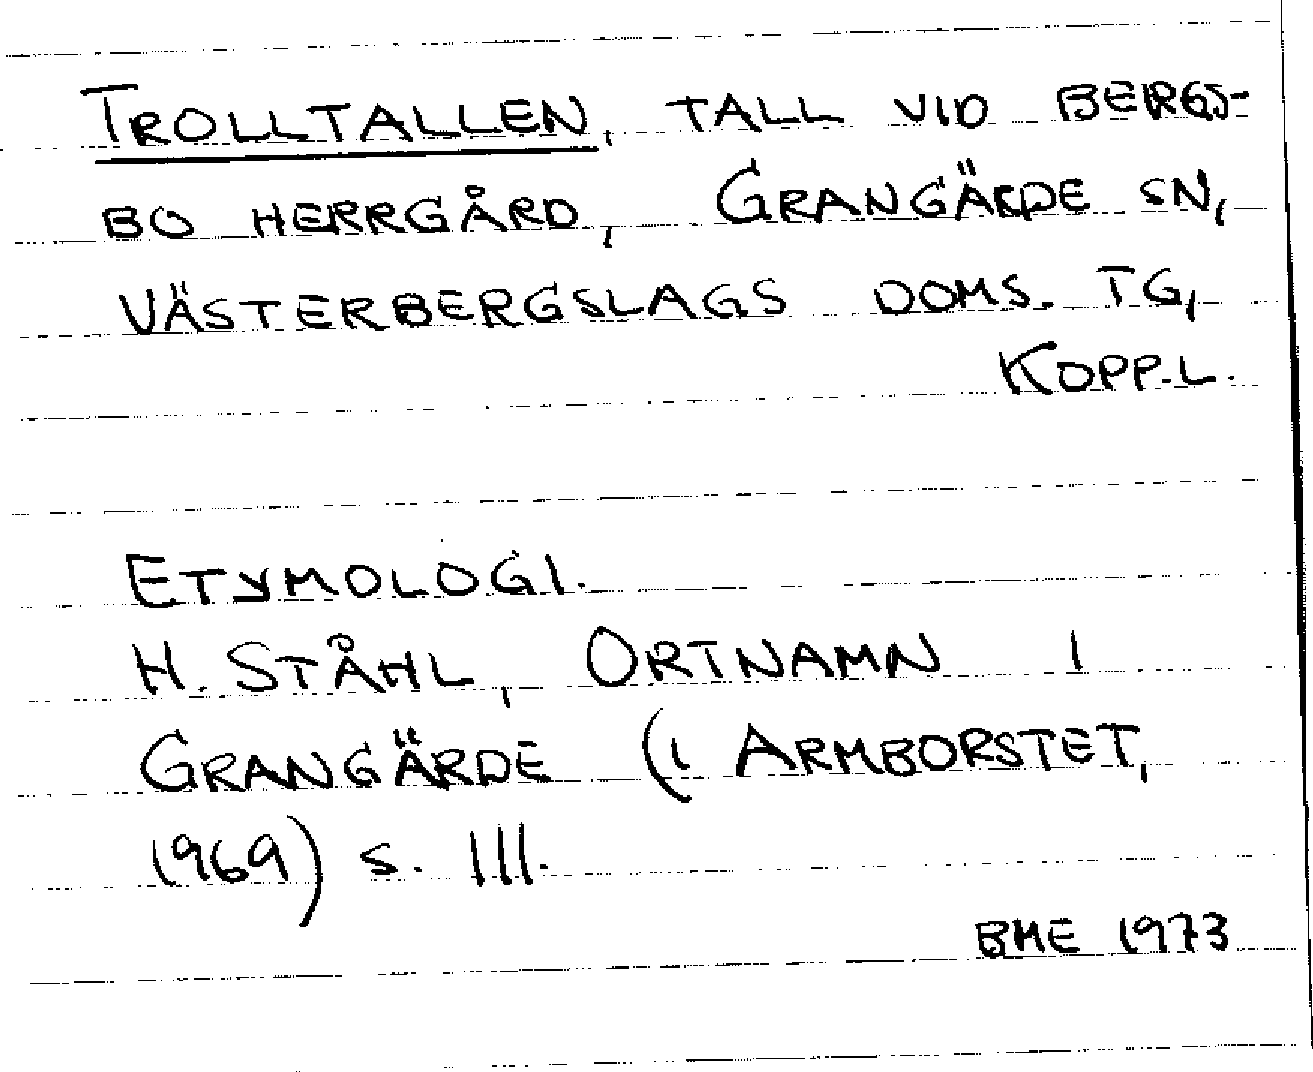 TROLLTALLEN, TALL VID BERGS-
BO HERRGÅRD, GRANGÄRDE SN,
VÄSTERBERGSLAGS DOMS. TG,
KOPP.L.
ETYMOLOGI.
H. STÅHL, ORTNAMN I
GRANGÄRDE (I ARMBORSTET,
1969) S. 111.
BME 1973